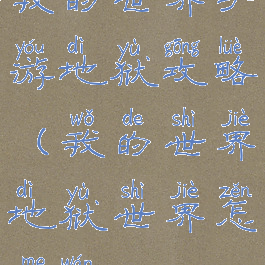 我的世界
yóu dì yù gōng lüè
游地狱攻略
wǒ de shì jiè
(我的世界
dì yù shì jiè zěn
地狱世界怎
me wán